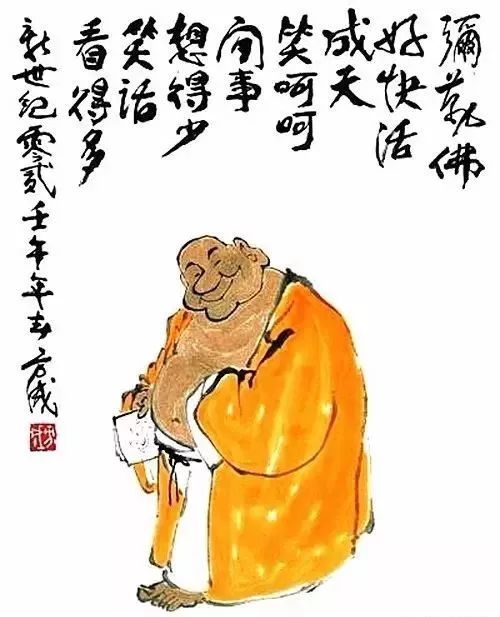 彌勒佛
好快活
成天
笑呵呵
闲事
想得少
笑话
看得多
新世纪零贰壬午年春方成